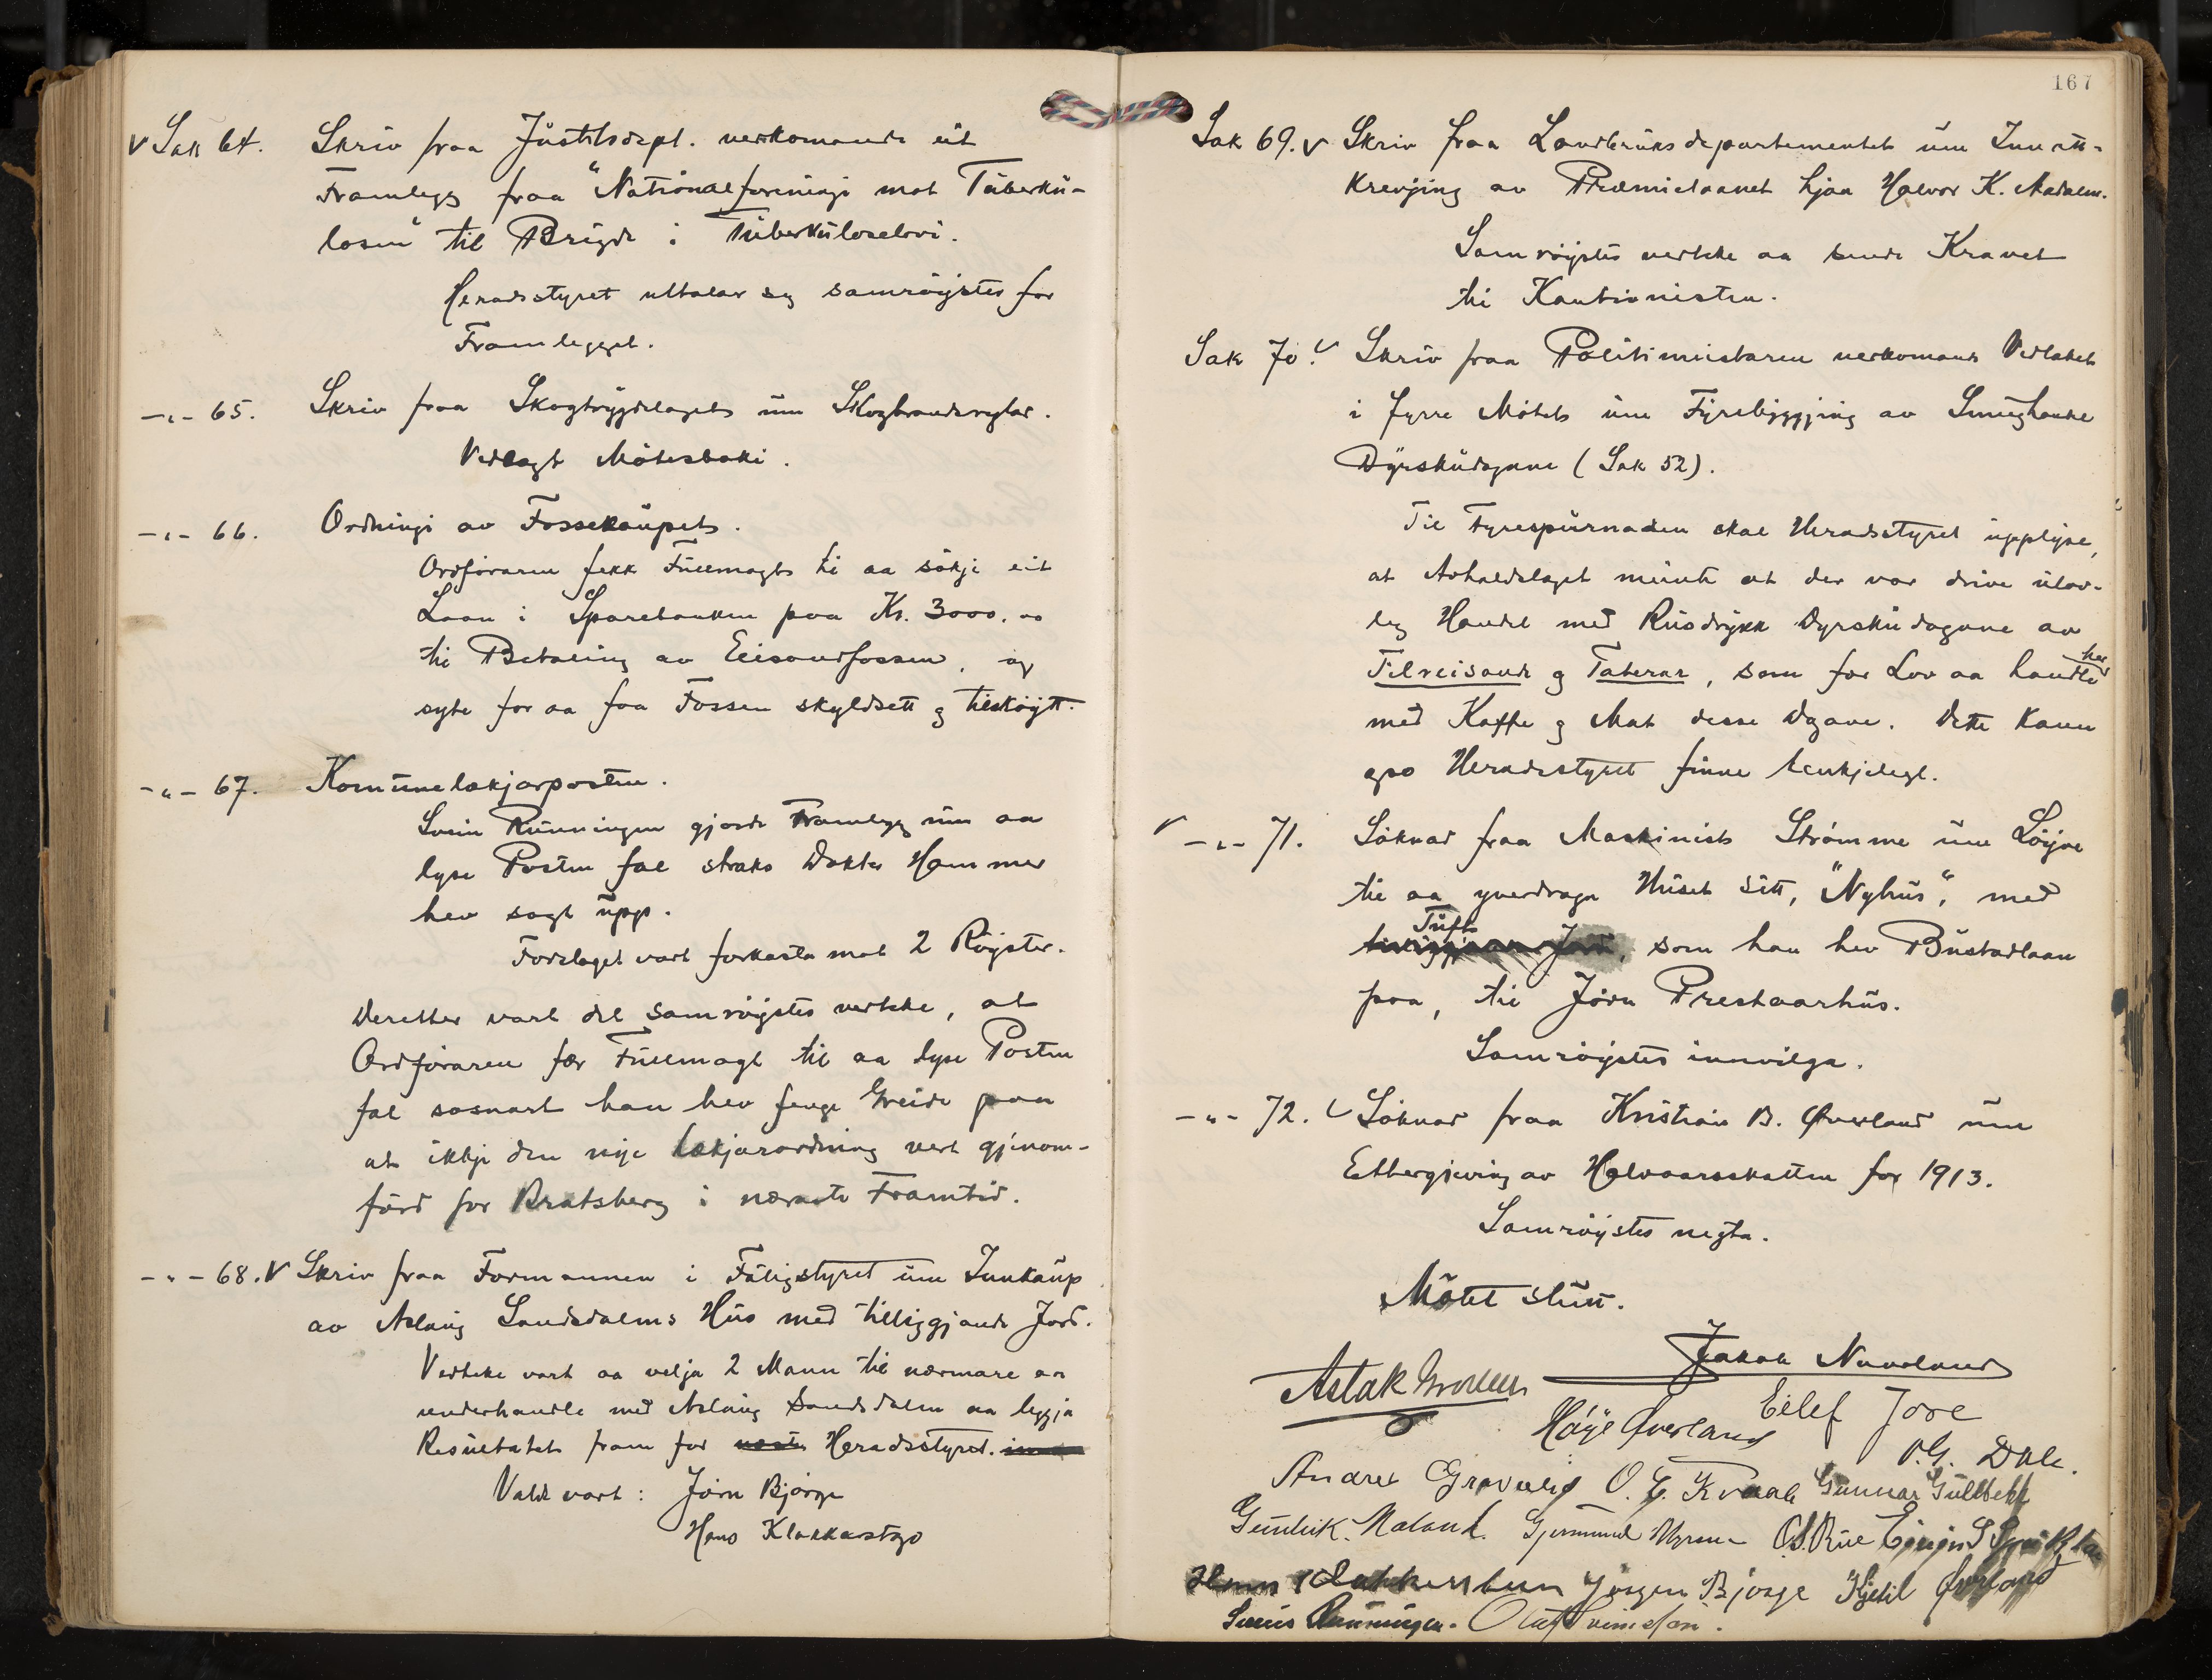 V Sak 64. Skriv fraa Justitsdept. verkomande eit
Framlegg fraa "Nationalforeningi mot Tuberku-
losen" til Brigde i Tuberkuloselovi.
Heradsstyret uttalar seg samrøystes for
Framlegget.
-"- 65. Skriv fraa Skogbrygdelaget um Skogbrandreglar.
Vedlagt Møtesboki.
-"- 66. Ordningi av Fossekaupet.
Ordføraren fekk Fullmagt til aa søkje eit
Laan i Sparebanken paa Kr. 3000.00
til Betaling av Elisandfossen, og
syte for aa faa Fossen skyldsett og tilskøytt.
-"- 67. Komunelækjarposten.
Svein Runningen gjorde Framlegg um aa
lyse Posten fal straks Dokter Hammer
hev sagt upp.
Forslaget vart forkasta mot 2 Røyster.
Deretter vart det samrøystes verteke, at
Ordføraren fær Fullmagt til aa lyse Posten
fal sosnart han hev fenge Greide paa
at ikkje den nye lækjarordning vert gjenom-
førd for Bratsberg i nærmaste Framtid.
-"- 68. V Skriv fraa Formannen i Fatigstyret um Innkaup
av Aslaug Sandsdalens Hus med tilliggjande Jord.
Vedteke vart aa velja 2 Mann til nærmare aa
underhandle med Aslaug Sandsdalen aa leggja
Resultatet fram for næste Heradsstyret.
Valde vart: Jørn Bjørge
Hans Klakkastøyo
167
Sak 69. V Skriv fraa Landbruksdepartementet um Inn att-
krevjing av Præmielaanet hjaa Halvor K. Aadalen.
Samrøystes verteke aa sende Kravet
til Kautionisten.
Sak 70. V Skriv fraa Politimeistaren verkomande Vedtaket
i fyrre Møtet um Fyrebyggjing av Smughandel
Dyrskudagane (Sak 52).
Til Fyrespurnaden skal Heradsstyret upplyse,
at Avhaldslaget meinte at der var drive ulov-
leg Handel med Rusdrykk Dyrskudagane av
Tilreisande og Taterar, som fær Lov aa handle her
med Kaffe og Mat desse Dagane. Dette kann
ogso Heradsstyret finne tenkjelegt.
V -"- 71. Søknad fraa Maskinist Strømme um Løyve
til aa yverdraga Huset sitt, "Nyhus", med
Tuft
tilliggjande Jord, som han hev Bustadlaan
paa, til Jørn Prestaarhus.
Samrøystes innvilga.
-"- 72. V Søknad fraa Kristian B. Øverland um
Ettergjeving av Halvaarsskatten for 1913.
Samrøystes negta.
Møtet slutt.
Jakob Naadland
Aslak Groven
Høye Øverland Eilef Jore
O.G. Dale.
Andres Gravalid O. G. Kvaale Gunnar Gullbekk
Gunleik Naland. Gjermund Myran O.S. Rue
Hans Klakkastein Jørgen Bjørge Kjetil Øverland
Svein Runningen. Olaf Sveinsson.